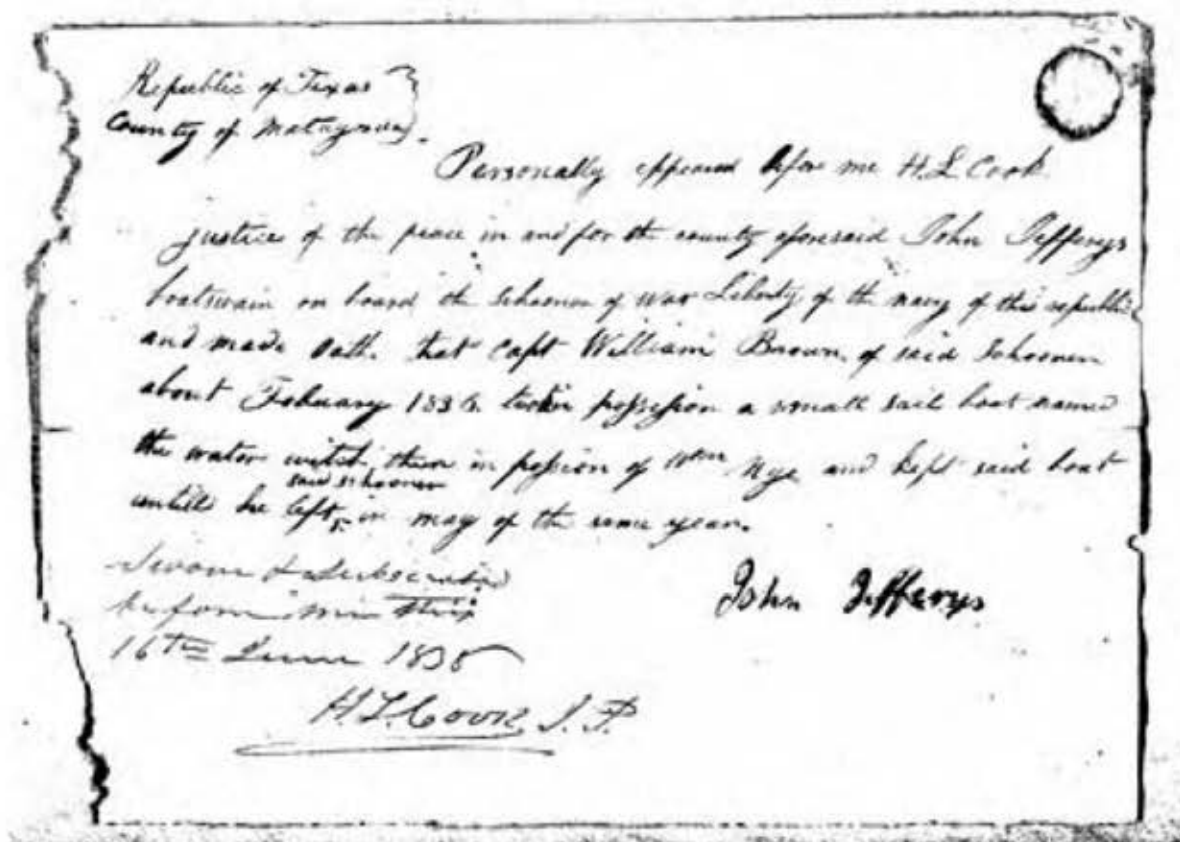 Republic of Texas
County of Matagorda
Personally appeared before me H. L. Cook
justice of the peace in and for the county aforesaid John Jefferys
boatswain on board the Schooner of War Liberty of the navy of this republic
and made oath that Capt William Brown of said Schooner
about February 1836 possession a small sail boat named
the water witch, then in possion of Wm Nye and kept said boat
said schooner
untill he left, in may of the same year.
Sworn & Subscribed
before me this
John Jefferys
16th June 1838
H. L. Cook, J. P.